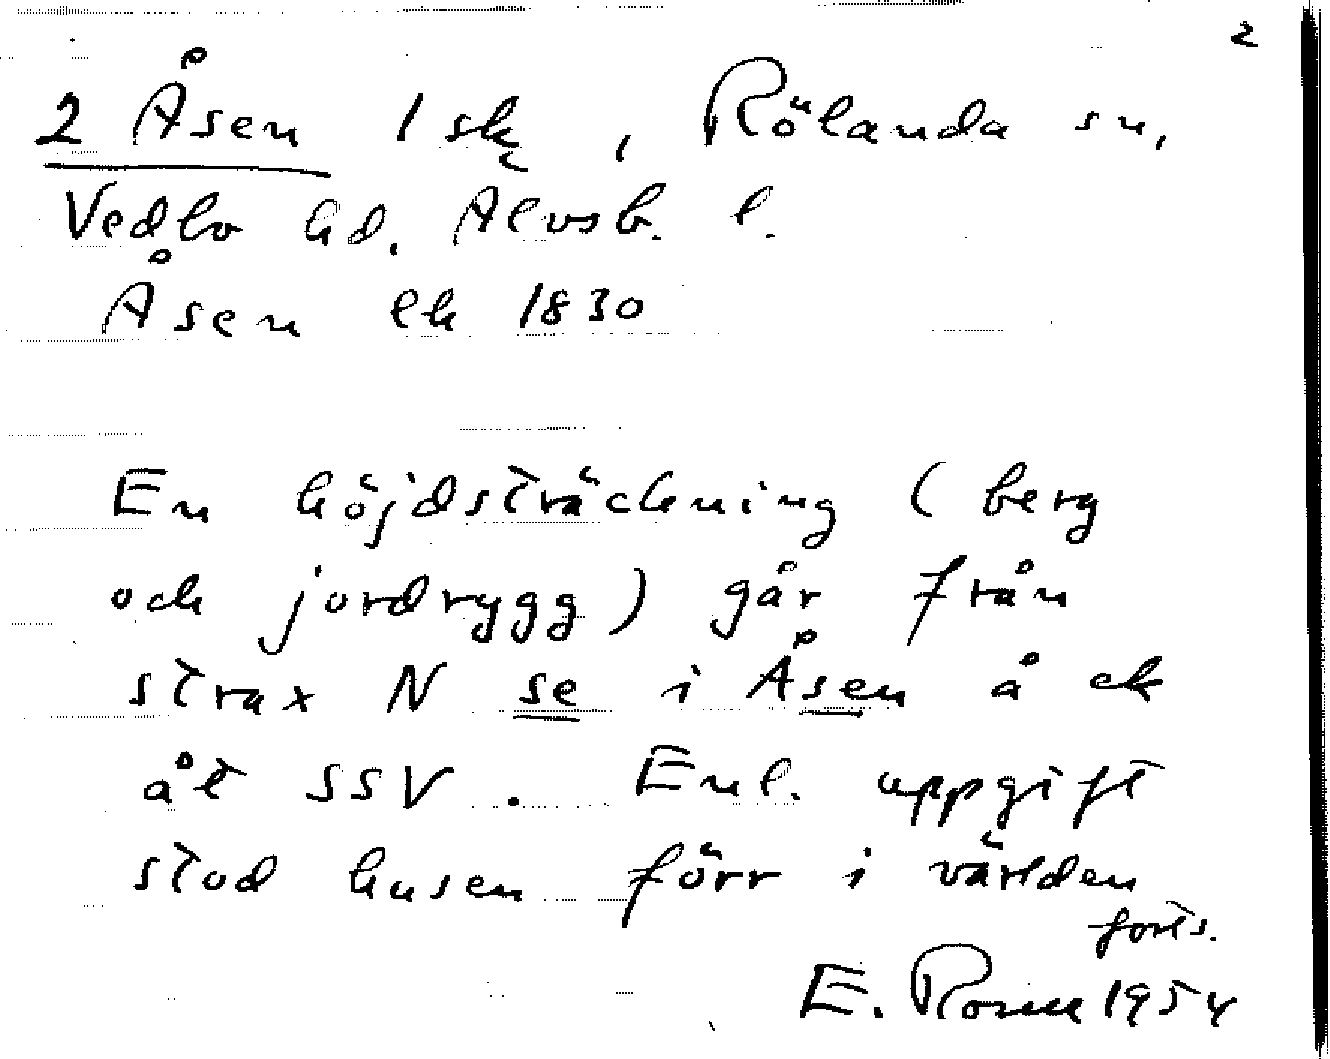 2
2 Åsen 1 sk, Rölanda sn,
Vedbo hd. Älvsb. l.
Åsen ek 1830
En höjdsträckning (berg
och jordrygg) går från
strax N se i Åsen å ek
åt SSV. Enl. uppgift
stod husen förr i världen
forts.
E. Rosell 1954